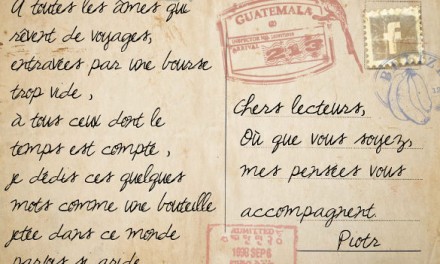 A toutes les âmes qui
rêvent de voyages,
entravées par une bourse
trop vide,
à tous ceux dont le
temps est compté,
je dédis ces quelques
mots comme une bouteille
jetée dans ce monde
parfois si aride
GUATEMALA
213
Chers lecteurs,
Où que vous soyez,
mes pensées vous
accompagnent.
Piotr
ADMITTED
1998 SEP 6